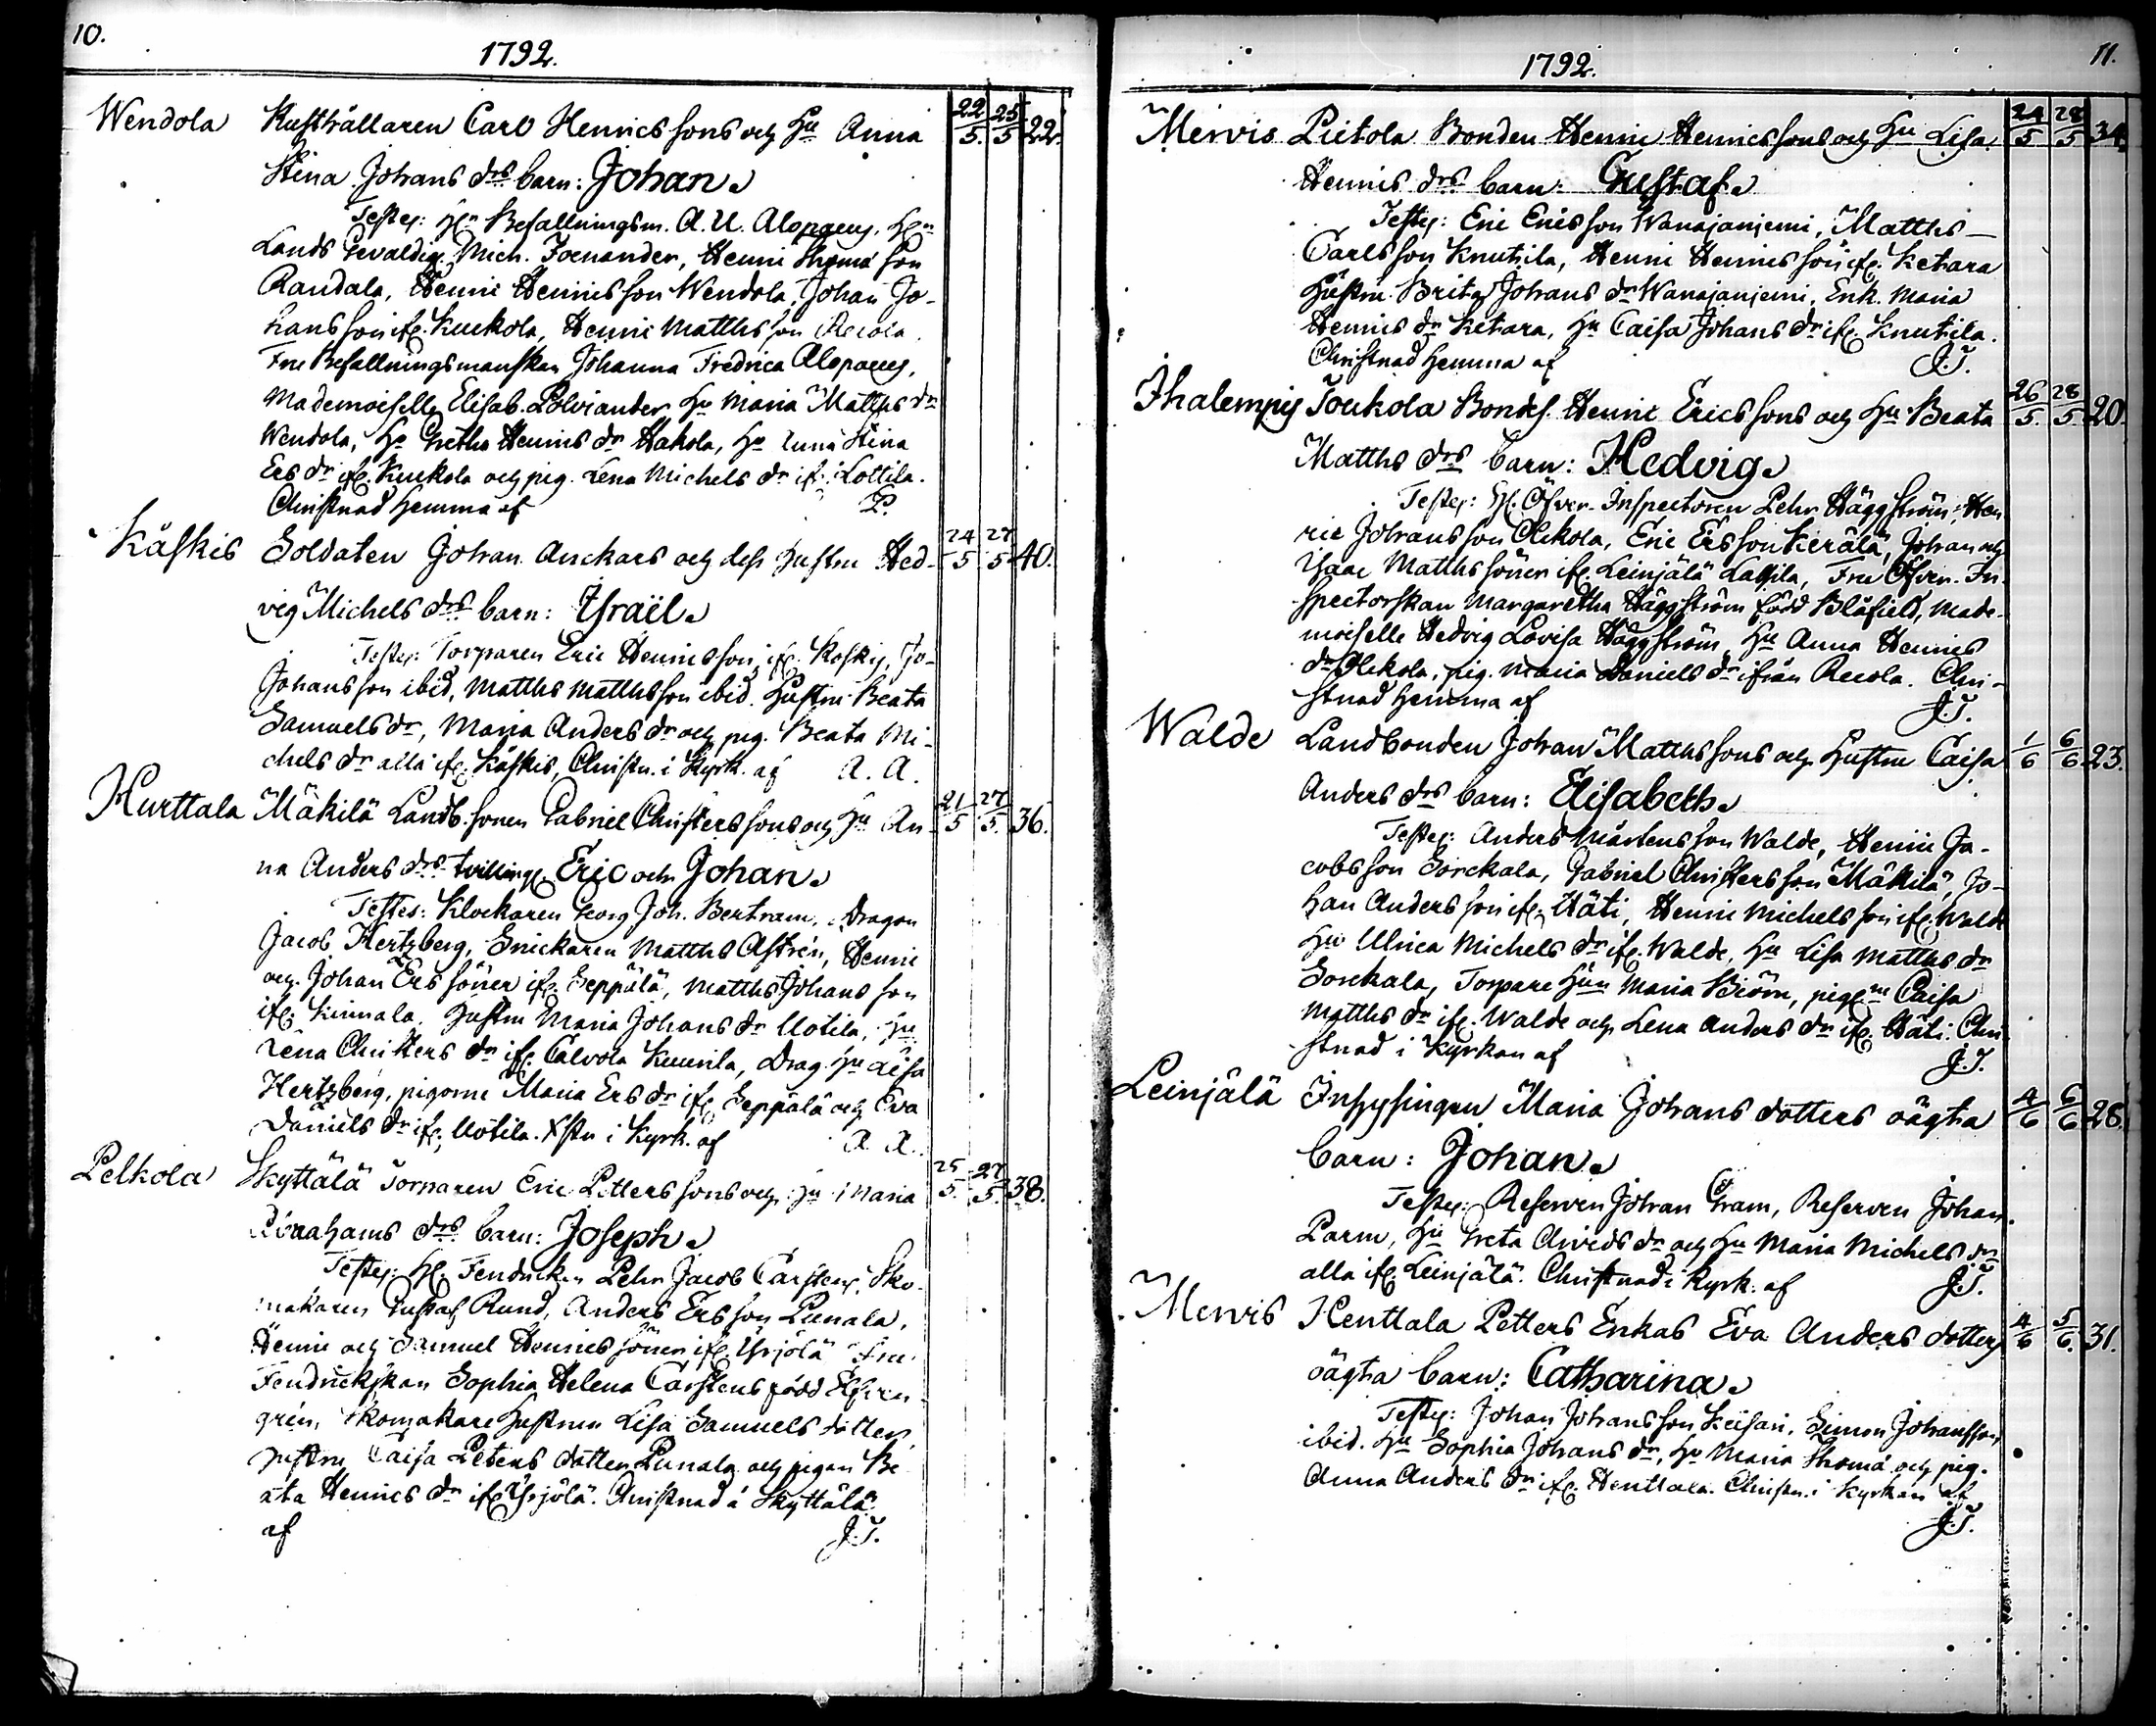 10.
1792.
Wendola Rusthållaren Carl Henricssons och Hu Anna 22/5. 25/5 22.
Stina Johans drs barn: Johan.
Testes: Hr Befallningsm. A. U. Alopaeus, Hr
Lands Gevaldig. Mich. Fornander, Henric Thomæ son
Randala, Henric Henricsson Wendola, Johan Jo-
hansson ifr. Kuckola, Henric Matthsson Recola.
Fru Befallningsmanskan Johanna Fredrica Alopaeus,
Mademoiselle Elisab. Polviander Hu Maria Matths dr
Wendola, Hu Gretha Henrics dr Hakola, Hu Anna Stina
Ers dr ifr. Kuckola och pig. Lena Michels dr ifr. Lottila.
Christnad hemma af P.
Kåskis Soldaten Johan Anckars och dess hustru Hed- 24/5 27/5 40.
vig Michels drs barn: Israël.
Testes: Torparen Eric Henricsson ifr. Koskis, Jo-
Johansson ibid, Matths Matthsson ibid. Hustru Beata
Samuels dr, Maria Anders dr och pig. Beata Mi-
chels dr alla ifr. Kåskis, Christn. i Kyrk. af A. A.
Hurttala Mäkilä Landb. sonen Gabriel Christerssons och Hu An- 21/5 27/5. 36.
na Anders drs tvilling. Eric och Johan.
Testes: Klockaren Georg Joh. Bertram, Dragon
Jacob Hertzberg, Snickaren Matths Astrén, Henric
och Johan Ers söner ifr. Seppälä, Matths Johans son
ifr. Kinnala, Hustru Maria Johans dr Uotila, Hu
Lena Christers dr ifr. Calvola Kuurila, Drag. Hu Lisa
Hertzberg, pigorne Maria Ers dr ifr. Seppälä och Eva
Daniels dr ifr. Uotila. Xstn i Kyrk. af A. A.
Pelkola Skyttälä Torparen Eric Petterssons och Hu Maria 25/5. 27/5. 38.
Abrahams drs barn: Joseph.
Testes: Hr Fendricken Pehr Jacob Carstens, Sko-
makaren Gustaf Rund, Anders Ersson Punala,
Henric och Samuel Henrics söner ifr. Yrjölä Fru
Fendrickskan Sophia Helena Carstens född
grén, Skomakare hustrun Lisa Samuels dotter,
hustru Caisa Peters dotter Punala och pigan Be-
ata Henrics dr ifr. Yrjölä. Christnad å Skyttälä
af J. T.
11.
1792.
Mervis Pietola Bonden Henric Henricssons och Hu Lisa 24/5 28/5 34.
Henrics drs barn: Gustaf.
Testes: Eric Ericsson Wanajaniemi, Matths
Carlsson Knutila, Henric Henricsson ifr. Ketara
Hustru Brita Johans dr Wanajaniemi, Enk. Maria
Henrics dr Ketara, Hu Caisa Johans dr ifr. Knutila.
Christnad hemma af J. T.
Ihalempis Toukola Bondes. Henric Ericssons och Hu Beata 26/5. 28/5. 20.
Matths drs barn: Hedvig.
Testes: Hr Öfver-Inspectoren Pehr Häggström, Hen-
ric Johansson Olekola, Eric Ersson Kerälä, Johan och
Isaac Matths söner ifr. Leinjälä Lassila, Fru Öfver-In-
spectorskan Margaretha Häggström född Blåfield, Made-
moiselle Hedvig Lovisa Häggström, Hu Anna Henrics
dr Olekola, pig. Maria Daniels dr ifrån Recola. Chri-
stnad hemma af J. T.
Walde Landbonden Johan Matthssons och hustru Caisa 1/6 6/6 23.
Anders drs barn: Elisabeth.
Testes: Anders Mårtensson Walde, Henric Ja-
cobsson Sorckala, Gabriel Christersson Mäkilä, Jo-
han Andersson ifr. Häti, Henric Michelsson ifr. Walde
Hu Ulrica Michels dr ifr. Walde, Hu Lisa Matths dr
Sorckala, Torpare Hun Maria Biörn, pigorne Caisa
Matths dr ifr. Walde och Lena Anders dr ifr. Häti. Chri-
stnad i Kyrkan af J. T.
Leinjälä Inhysingen Maria Johans dotters oägta 4/6 6/6 28.
barn: Johan.
Testes: Reserven Johan Gram, Reserven Johan
Parm, Hu Greta Arvids dr och Hu Maria Michels dr
alla ifr. Leinjälä. Christnad i Kyrk. af J. T.
Mervis Henttala Petters Enkas Eva Anders dotters 4/6 5/6. 31.
oägta barn: Catharina.
Testes: Johan Johansson Keisari, Simon Johansson
ibid. Hu Sophia Johans dr, Hu Maria Thomæ och pig.
Anna Anders dr ifr. Henttala. Christn. i Kyrkan af
J. T.